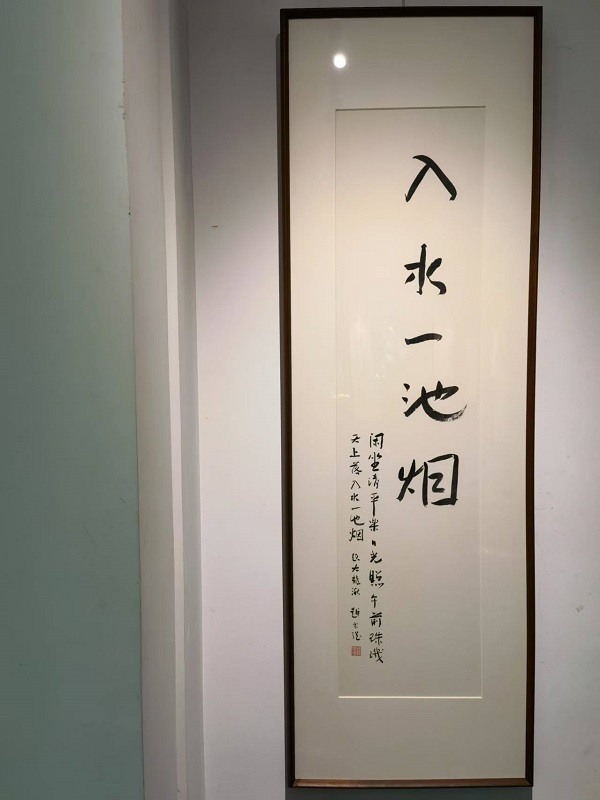 入水一池烟
闲坐清平乐日光照午前珠玑
天上落入水一池烟